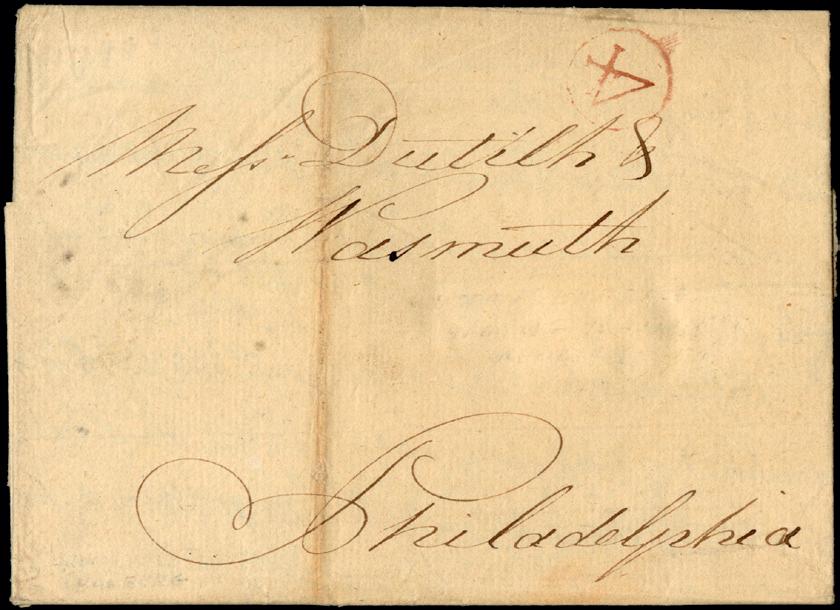 4
Messrs. Dutilh &
Wasmuth
Philadelphia